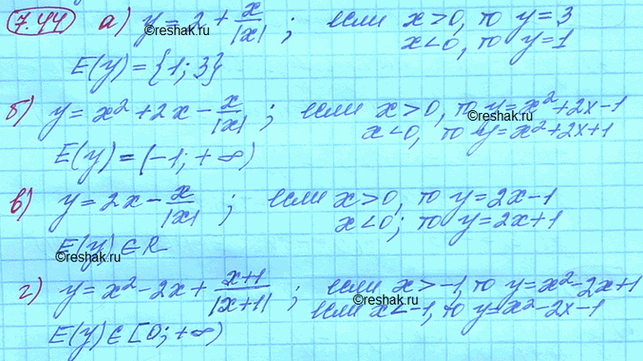 7.44 а) y = 2 + x/|x| ; если x > 0, то y = 3
©reshak.ru
x < 0, то y = 1
E(y) = {1; 3}
б) y = x² + 2x - x/|x| ; если x > 0, то y = x² + 2x - 1
©reshak.ru
x < 0, то y = x² + 2x + 1
E(y) = (-1; +∞)
в) y = 2x - x/|x| ; если x > 0, то y = 2x - 1
x < 0; то y = 2x + 1
E(y) ∈ R
©reshak.ru
г) y = x² - 2x + x+1/|x+1| ; если x > -1, то y = x² - 2x + 1
©reshak.ru
если x < -1, то y = x² - 2x - 1
E(y) ∈ [0; +∞)